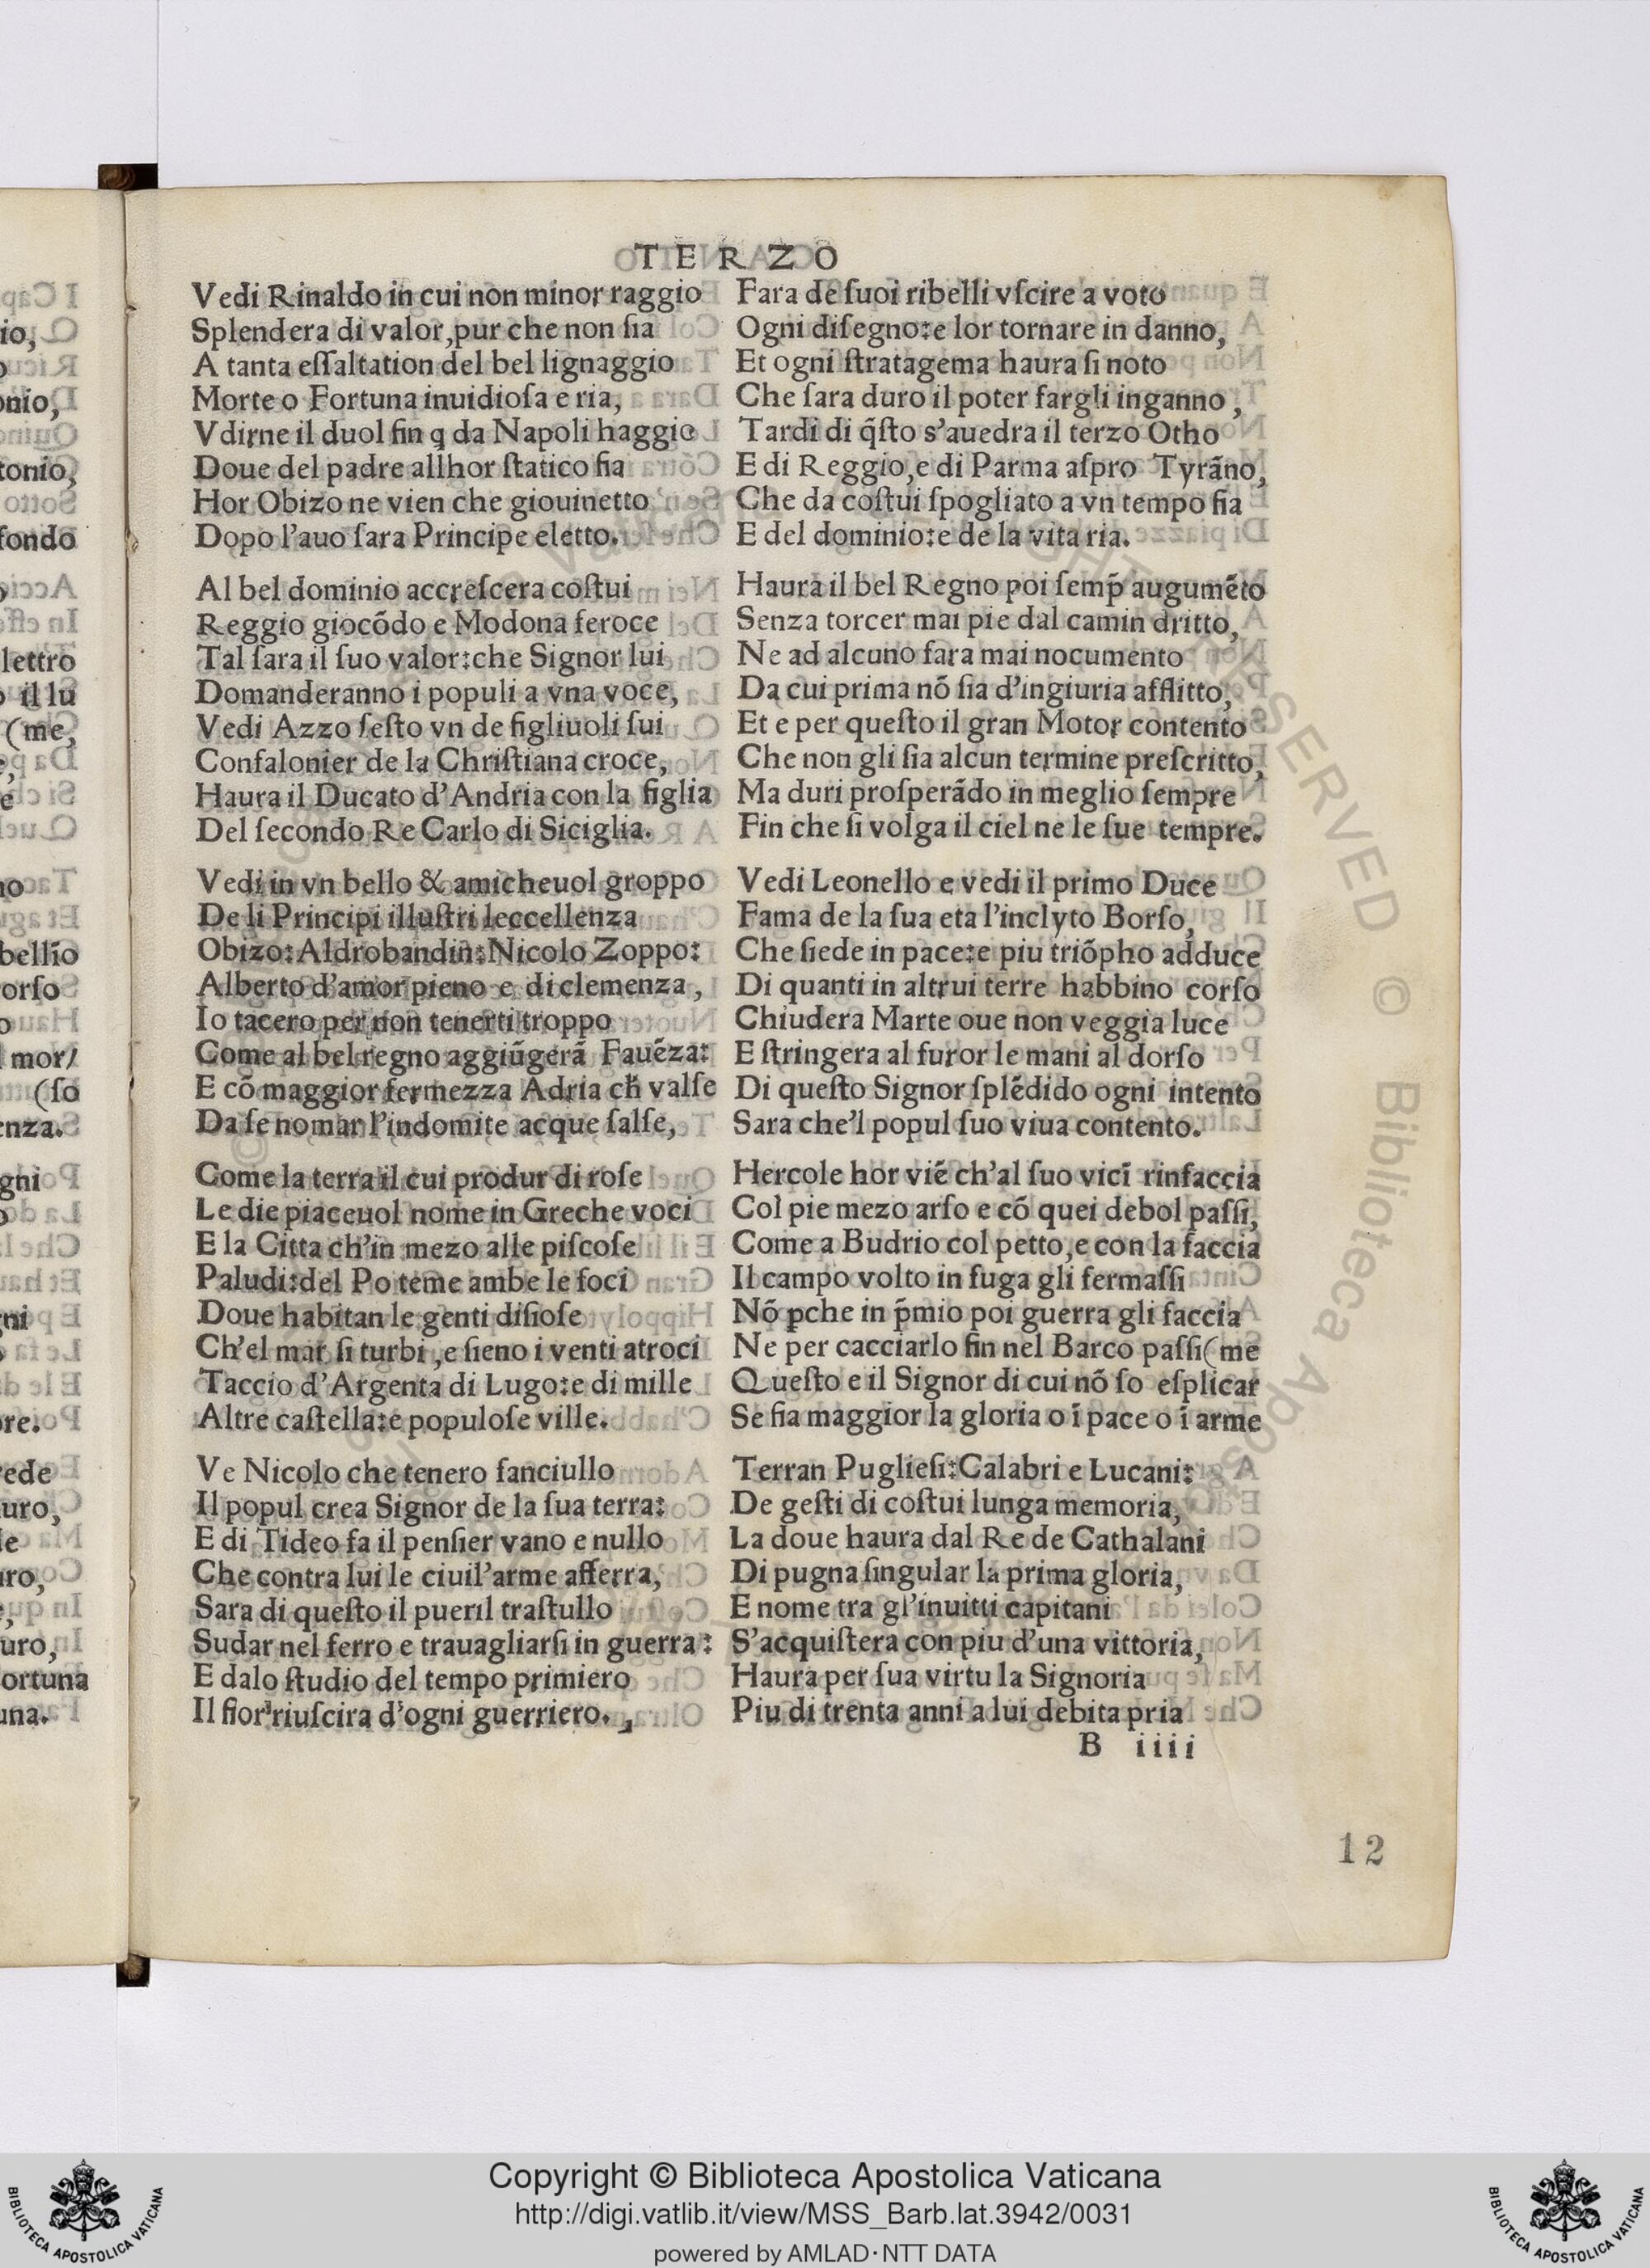 TERZO
Vedi Rinaldo in cui non minor raggio
Splendera di valor,pur che non ſia
A tanta eſſaltation del bel lignaggio
Morte o Fortuna inuidioſa e ria,
Vdirne il duol fin q da Napoli haggio
Doue del padre allhor ſtatico fia
Hor Obizo ne vien che giouinetto
Dopo l'auo ſara Principe eletto.
Al bel dominio accreſcera coſtui
Reggio giocõdo e Modona feroce
Tal ſara il ſuo valor:che Signor lui
Domanderanno i populi a vna voce,
Vedi Azzo ſeſto vn de figliuoli ſui
Confalonier de la Chriſtiana croce,
Haura il Ducato d'Andria con la figlia
Del ſecondo Re Carlo di Siciglia.
Vedi in vn bello & amicheuol groppo
De li Principi illuſtri leccellenza
Obizo:Aldrobandin:Nicolo Zoppo:
Alberto d'amor pieno e di clemenza,
Io tacero per non tenerti troppo
Come al bel regno aggiũgerã Fauẽza:
E cõ maggior fermezza Adria ch̃ valſe
Da ſe nomar l'indomite acque ſalſe,
Come la terra il cui produr di roſe
Le die piaceuol nome in Greche voci
E la Citta ch'in mezo alle piſcoſe
Paludi:del Po teme ambe le foci
Doue habitan le genti diſioſe
Ch'el mar ſi turbi,e ſieno i venti atroci
Taccio d'Argenta di Lugo:e di mille
Altre caſtella:e populoſe ville.
Ve Nicolo che tenero fanciullo
Il popul crea Signor de la ſua terra:
E di Tideo fa il penſier vano e nullo
Che contra lui le ciuil'arme afferra,
Sara di queſto il pueril traſtullo
Sudar nel ferro e trauagliarſi in guerra:
E dalo ſtudio del tempo primiero
Il fior riuſcira d'ogni guerriero.
Fara de ſuoi ribelli vſcire a voto
Ogni diſegno:e lor tornare in danno,
Et ogni ſtratagema haura ſi noto
Che ſara duro il poter fargli inganno,
Tardi di q̃ſto s'auedra il terzo Otho
E di Reggio,e di Parma aſpro Tyrãno,
Che da coſtui ſpogliato a vn tempo fia
E del dominio:e de la vita ria.
Haura il bel Regno poi ſemp̃ augumẽto
Senza torcer mai pie dal camin dritto,
Ne ad alcuno fara mai nocumento
Da cui prima nõ ſia d'ingiuria afflitto,
Et e per queſto il gran Motor contento
Che non gli ſia alcun termine preſcritto,
Ma duri proſperãdo in meglio ſempre
Fin che ſi volga il ciel ne le ſue tempre.
Vedi Leonello e vedi il primo Duce
Fama de la ſua eta l'inclyto Borſo,
Che ſiede in pace:e piu triõpho adduce
Di quanti in altrui terre habbino corſo
Chiudera Marte oue non veggia luce
E ſtringera al furor le mani al dorſo
Di queſto Signor ſplẽdido ogni intento
Sara che'l popul ſuo viua contento.
Hercole hor viẽ ch'al ſuo vicĩ rinfaccia
Col pie mezo arſo e cõ quei debol paſſi,
Come a Budrio col petto,e con la faccia
Il campo volto in fuga gli fermaſſi
Nõ ꝑche in p̃mio poi guerra gli faccia
Ne per cacciarlo fin nel Barco paſſi(me
Queſto e il Signor di cui nõ ſo eſplicar
Se fia maggior la gloria o ĩ pace o ĩ arme
Terran Puglieſi:Calabri e Lucani:
De geſti di coſtui lunga memoria,
La doue haura dal Re de Cathalani
Di pugna ſingular la prima gloria,
E nome tra gl'inuitti capitani
S'acquiſtera con piu d'una vittoria,
Haura per ſua virtu la Signoria
Piu di trenta anni a lui debita pria
B iiii
12
io,
onio,
tonio,
fondo
lettro
il lu
(me,
bellĩo
orſo
mor/
(ſo
enza.
gni
ede
uro,
uro,
ortuna
una.
Copyright © Biblioteca Apostolica Vaticana
http://digi.vatlib.it/view/MSS_Barb.lat.3942/0031
powered by AMLAD·NTT DATA
BIBLIOTECA APOSTOLICA VATICANA
BIBLIOTECA APOSTOLICA VATICANA